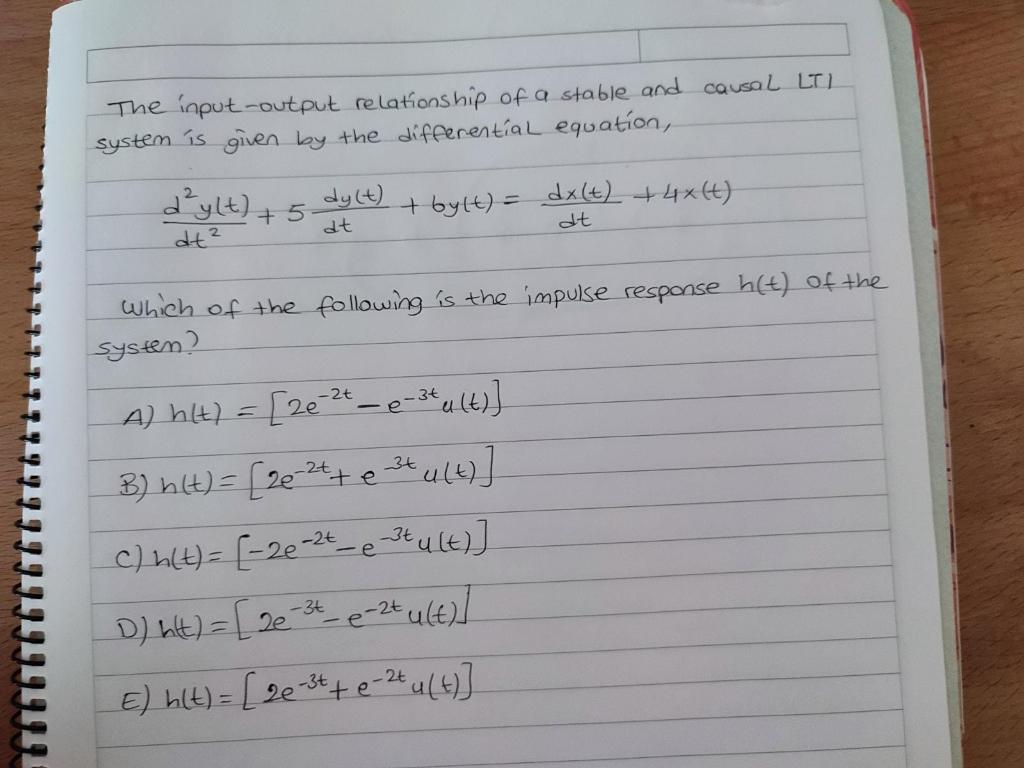 The input-output relationship of a stable and causal LTI
system is given by the differential equation,
d²y(t)/dt² + 5 dy(t)/dt + 6y(t) = dx(t)/dt + 4x(t)
Which of the following is the impulse response h(t) of the
system?
A) h(t) = [2e^-2t - e^-3t u(t)]
B) h(t) = [2e^-2t + e^-3t u(t)]
C) h(t) = [-2e^-2t - e^-3t u(t)]
D) h(t) = [2e^-3t - e^-2t u(t)]
E) h(t) = [2e^-3t + e^-2t u(t)]